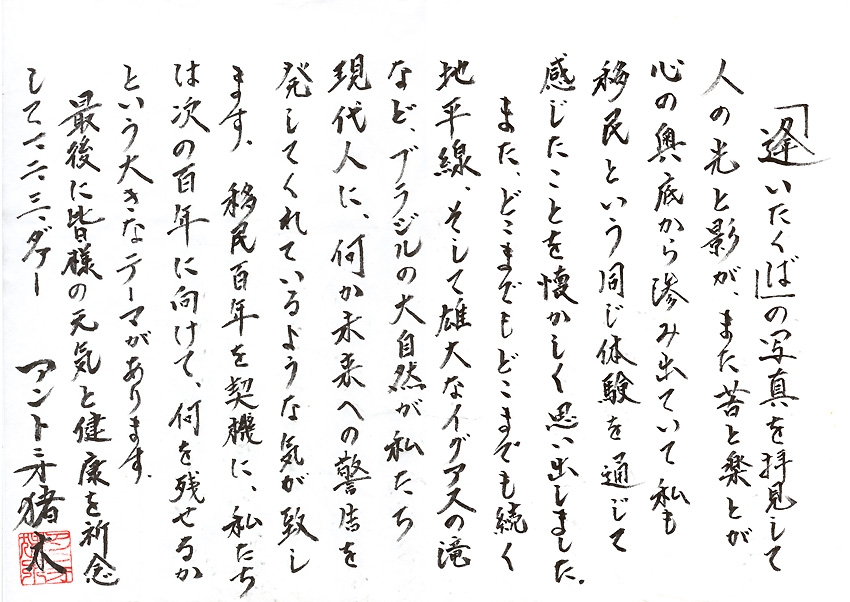 「逢いたくば」の写真を拝見して
人の光と影が、また苦と楽とが
心の奥底から滲み出ていて私も
移民という同じ体験を通じて
感じたことを懐かしく思い出しました。
また、どこまでもどこまでも続く
地平線、そして雄大なイグアスの滝
など、ブラジルの大自然が私たち
現代人に、何か未来への警告を
発してくれているような気が致し
ます。移民百年を契機に、私たち
は次の百年に向けて、何を残せるか
という大きなテーマがあります。
最後に皆様の元気と健康を祈念
して一、二、三、ダァー
アントニオ猪木